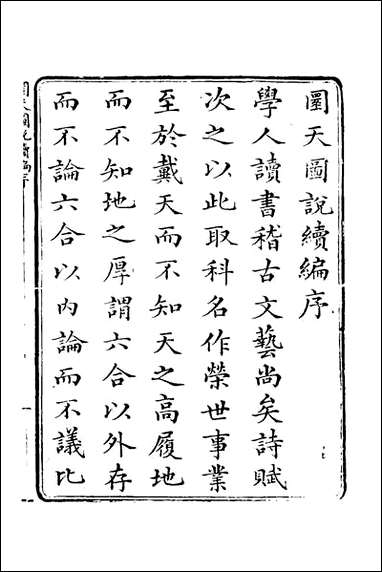 圜天圖說續編序
學人讀書稽古文藝尚矣詩賦
次之以此取科名作榮世事業
至於戴天而不知天之高履地
而不知地之厚謂六合以外存
而不論六合以内論而不議比